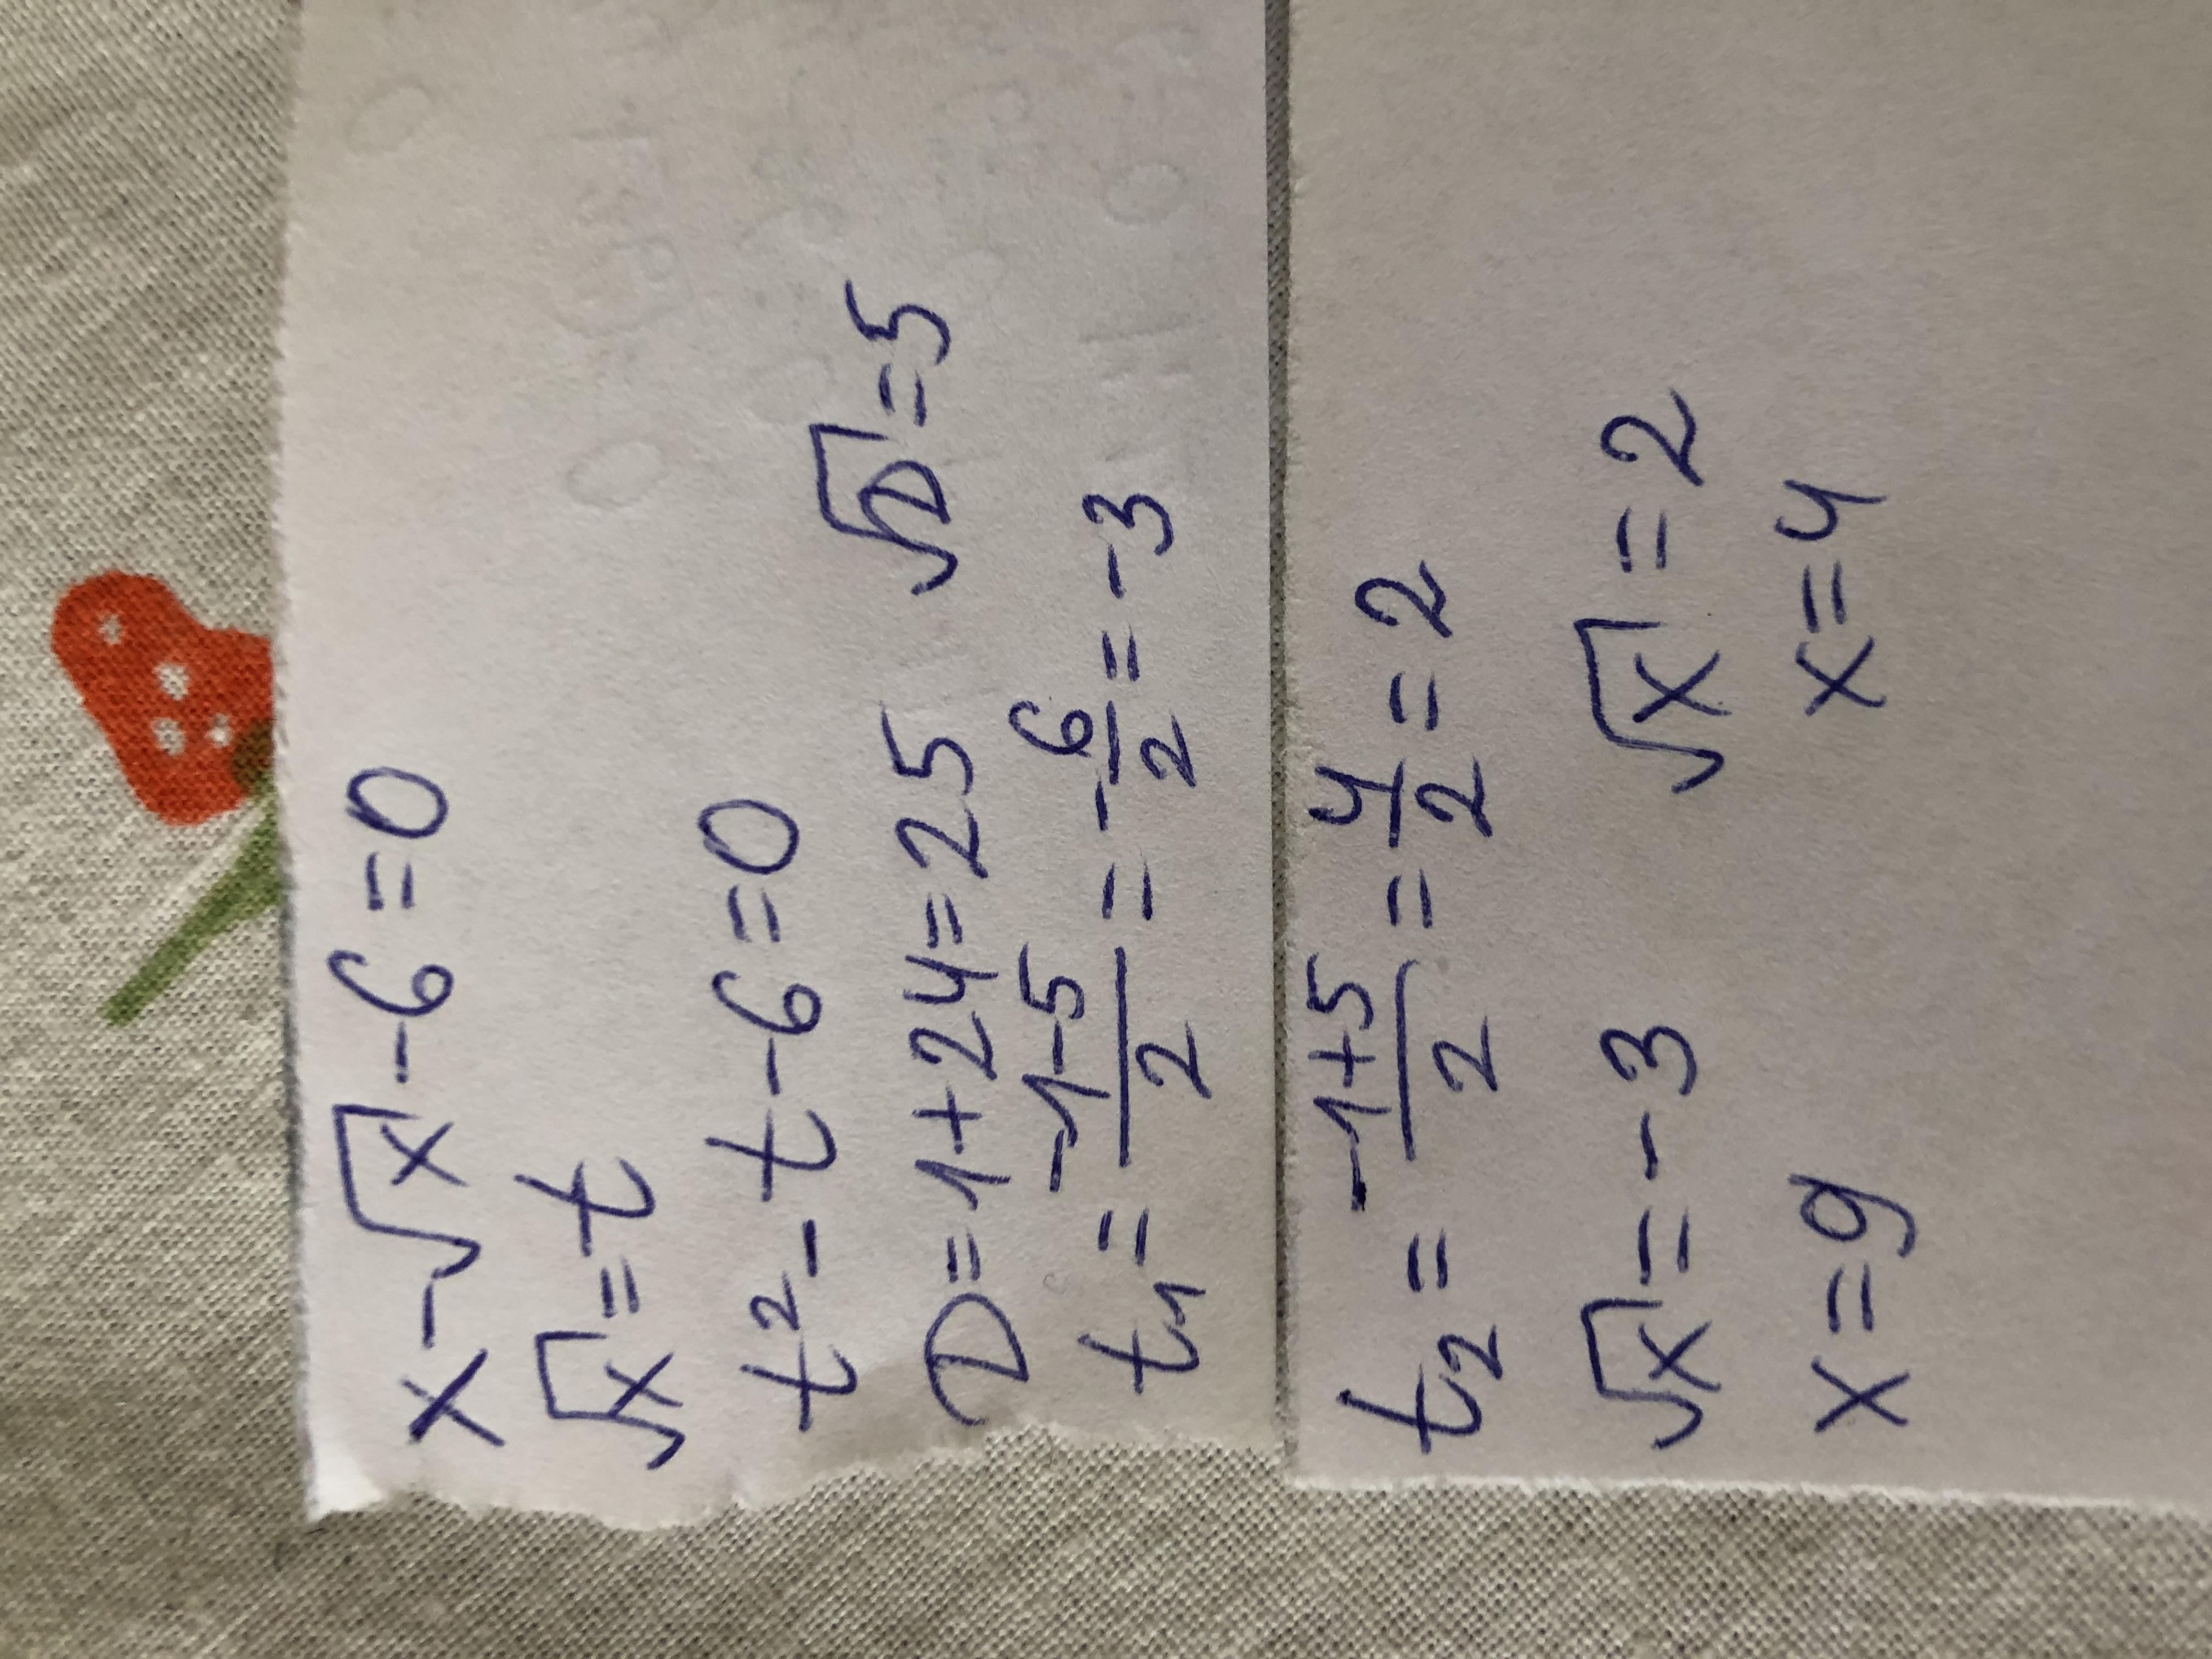 x-√x-6=0
√x=t
t²-t-6=0
D=1+24=25 √D=5
t₁=(-1-5)/2=-6/2=-3
t₂=(-1+5)/2=4/2=2
√x=-3 √x=2
x=9 x=4